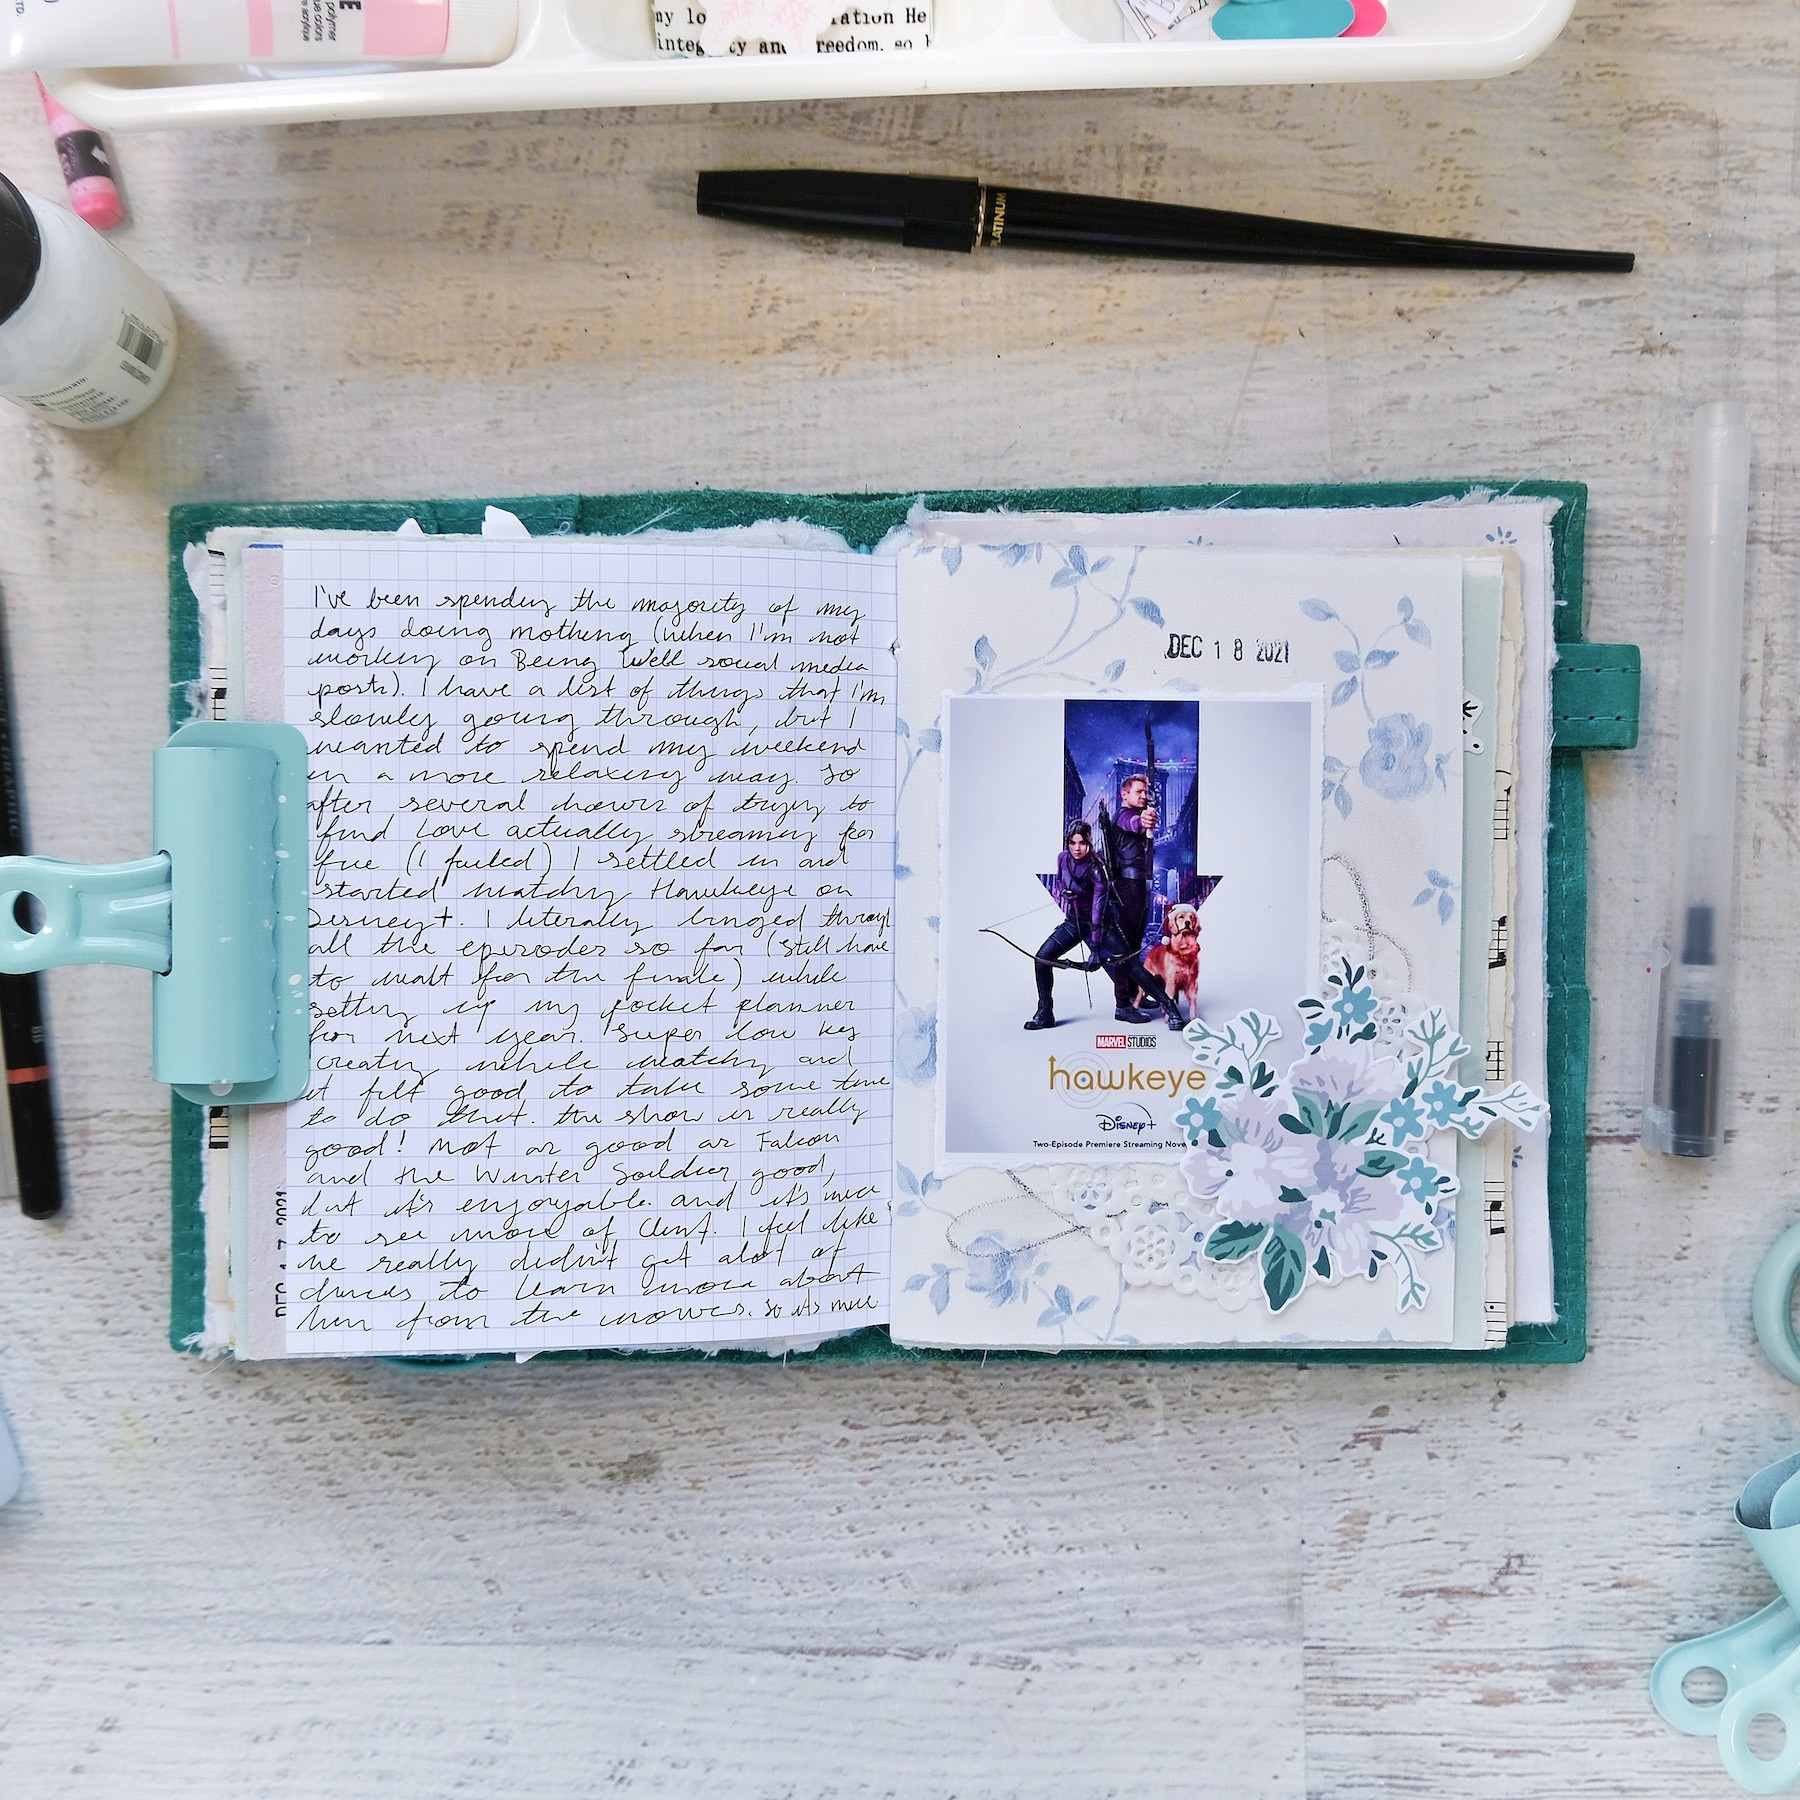 LTD.
E
polymer
my lo ration He
integ ty and reedom, so
PLATINUM
I've been spending the majority of my
days doing nothing (when I'm not
working on Being Well social media
posts). I have a list of things that I'm
slowly going through, but I
wanted to spend my weekend
in a more relaxing way. So
after several hours of trying to
find Love actually streaming for
free (I failed) I settled in and
started watching Hawkeye on
Disney+. I literally binged through
all the episodes so far (still have
to wait for the finale) while
setting up my pocket planner
for next year. Super low key
creating while watching and
it felt good to take some time
to do that. the show is really
good! Not as good as Falcon
and the Winter Soldier good,
but it's enjoyable. and it's nice
to see more of Clint. I feel like
we really didn't get alot of
chances to learn more about
him from the movies. so it's nice
DEC 17 2021
DEC 18 2021
MARVEL STUDIOS
hawkeye
Disney+
Two-Episode Premiere Streaming Nove